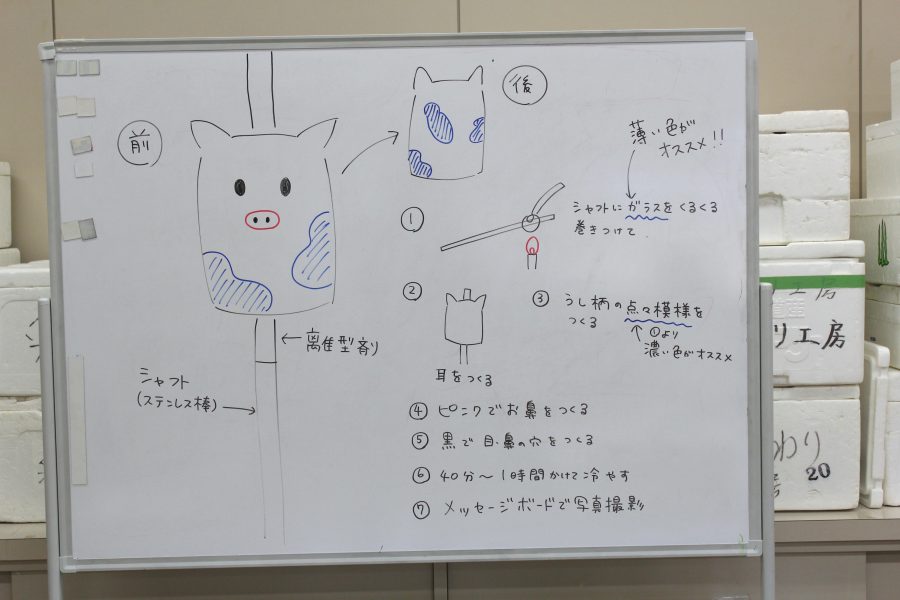 前
後
薄い色が
オススメ!!
① シャフトにガラスをくるくる
巻きつけて
② 耳をつくる
③ うし柄の点々模様を
つくる
①より
濃い色がオススメ
離型剤
シャフト
(ステンレス棒)
④ ピンクでお鼻をつくる
⑤ 黒で目、鼻の穴をつくる
⑥ 40分～1時間かけて冷やす
⑦ メッセージボードで写真撮影
工房
リ工房
わり
20